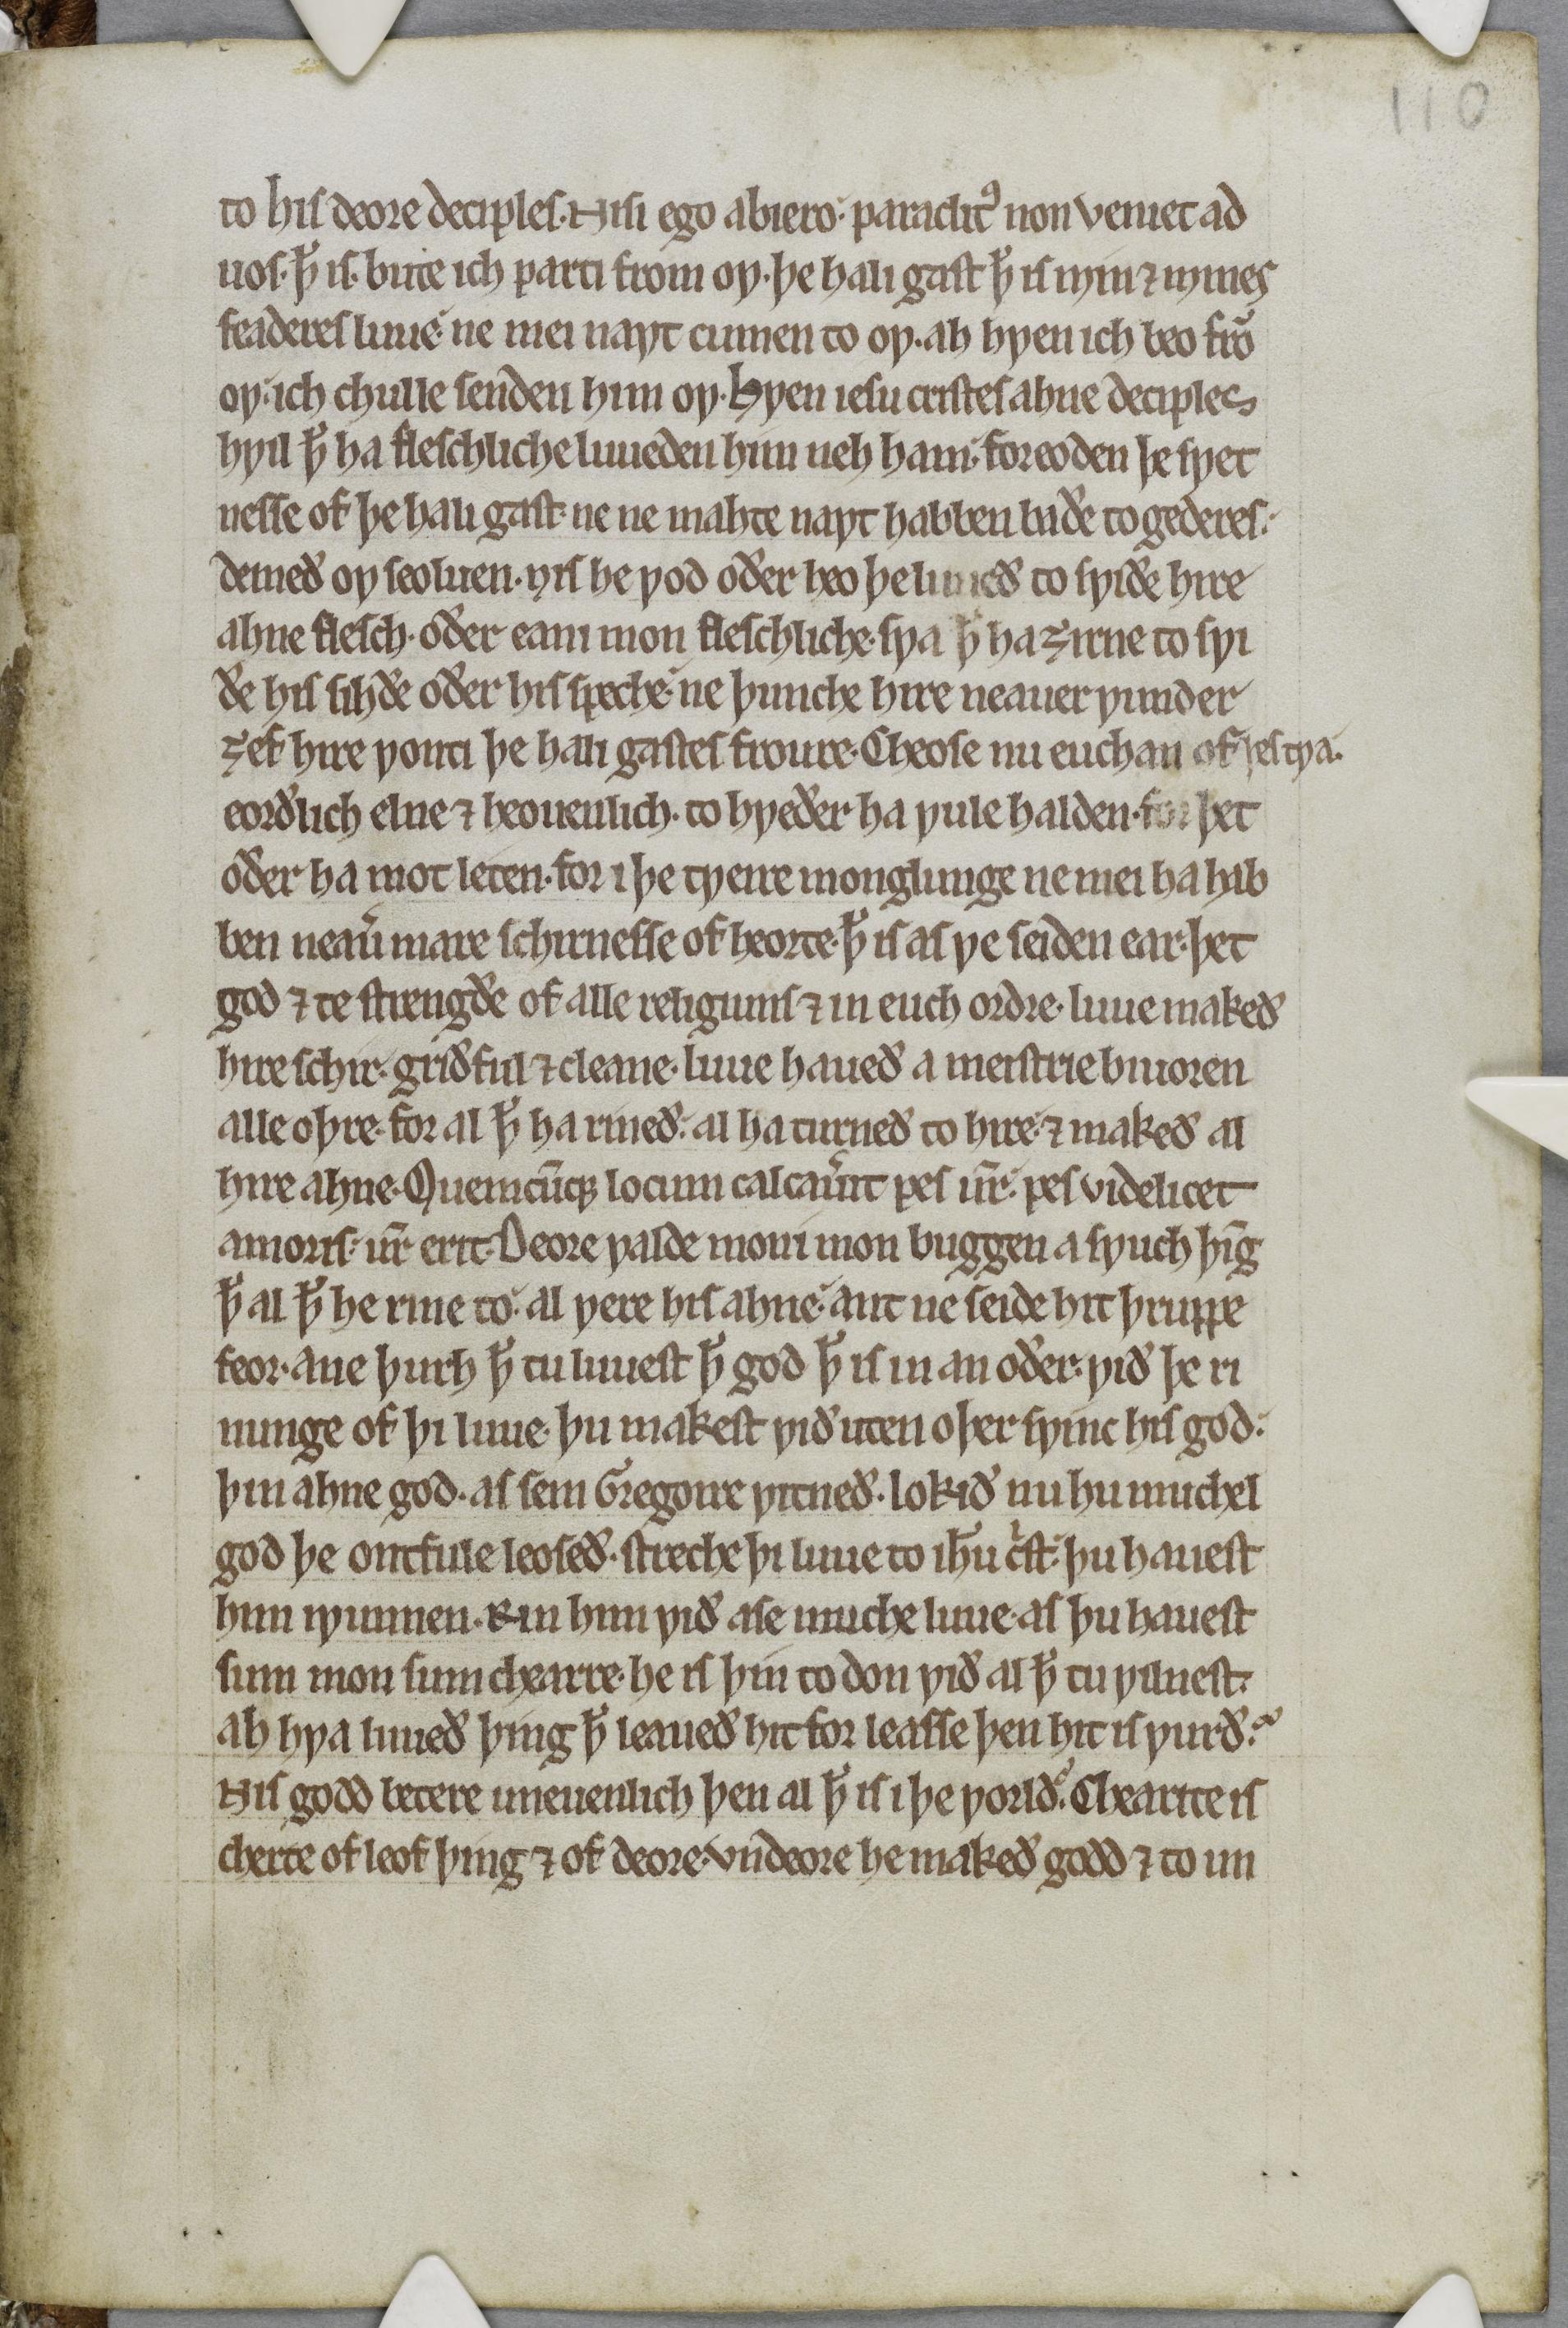 110
to his deore deciples. Nisi ego abiero: paraclitꝰ non veniet ad
uos. ꝥ is. bute ich parti from oƿ. þe hali gast ꝥ is min ⁊ mines
feaderes luue: ne mei naƿt cumen to oƿ. ah hƿen ich beo frō
oƿ: ich chulle senden him oƿ. Hƿen iesu cristes ahne deciples
hƿil ꝥ ha fleschliche luueden him neh ham: foreoden þe sƿet
nesse of þe hali gast. ne ne mahte naƿt habben baðe to gederes:
demeð oƿ seoluen. ƿis he ƿod oðer heo þe luueð to sƿiðe hire
ahne flesch. oðer eani mon fleschliche. sƿa ꝥ ha ȝirne to sƿi
ðe his sihðe oðer his speche: ne þunche hire neauer ƿunder
ȝef hire ƿonti þe hali gastes froure. Cheose nu euchan of þes tƿa.
eorðlich elne ⁊ heouenlich. to hƿeðer ha ƿule halden. for þet
oðer ha mot leten. for i þe tƿeire monglunge ne mei ha hab
ben neau̾ mare schirnesse of heorte. ꝥ is as ƿe seiden ear. þet
god ⁊ te strengðe of alle religiuns ⁊ in euch ordre. luue makeð
hire schir. griðful ⁊ cleane. luue haueð a meistrie biuoren
alle oþre. for al ꝥ ha rineð: al ha turneð to hire: ⁊ makeð al
hire ahne. Quemcūqꝫ locum calcau̾it pes ur̄: pes videlicet
amoris: ur̄ erit. Deore ƿalde moni mon buggen a sƿuch þīg
ꝥ al ꝥ he rine to: al ƿere his ahne: ant ne seide hit þruppe
feor. ane þurh ꝥ tu luuest ꝥ god ꝥ is in an oðer: ƿið þe ri
nunge of þi luue. þu makest ƿið uten oþer sƿinc his god:
þin ahne god. as sein Gregoire ƿitneð. lokið nu hu muchel
god þe ontfule leoseð. streche þi luue to ih̄u c̾st: þu hauest
him iƿunnen. Rin him ƿið ase muche luue. as þu hauest
sum mon sum chearre. he is þin to don ƿið al ꝥ tu ƿilnest:
ah hƿa luueð þing ꝥ leaueð hit for leasse þen hit is ƿurð:
Nis godd betere uneuenlich þen al ꝥ is i þe ƿorlð: Chearite is
cherte of leof þing ⁊ of deore. vndeore he makeð godd ⁊ to un